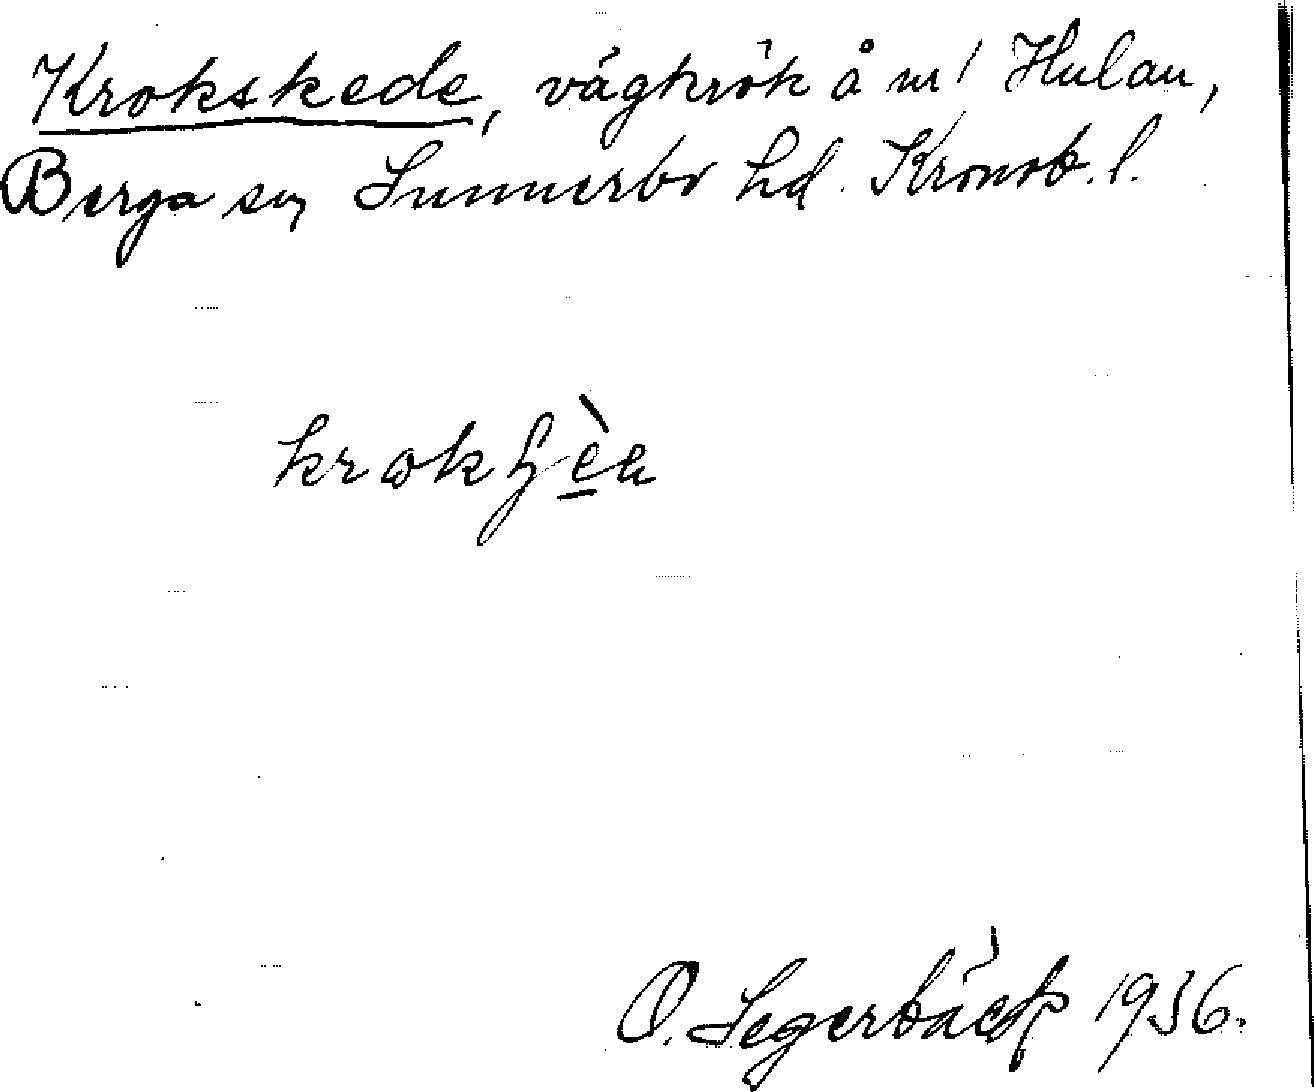 Krokskede, vägkrök å nr 1 Hulan,
Berga sn, Sunnerbo hd. Kronob. l.
O. Segerbäck 1936.